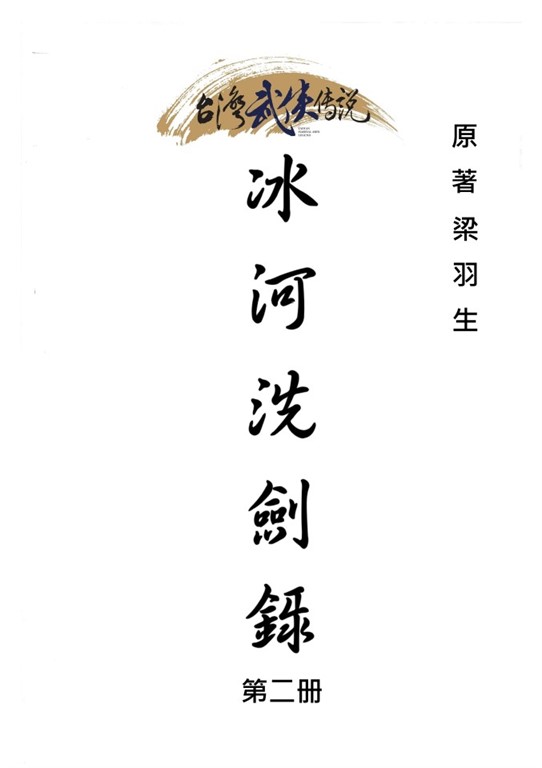 台灣武俠传説
原著梁羽生
冰河洗劍錄
第二册